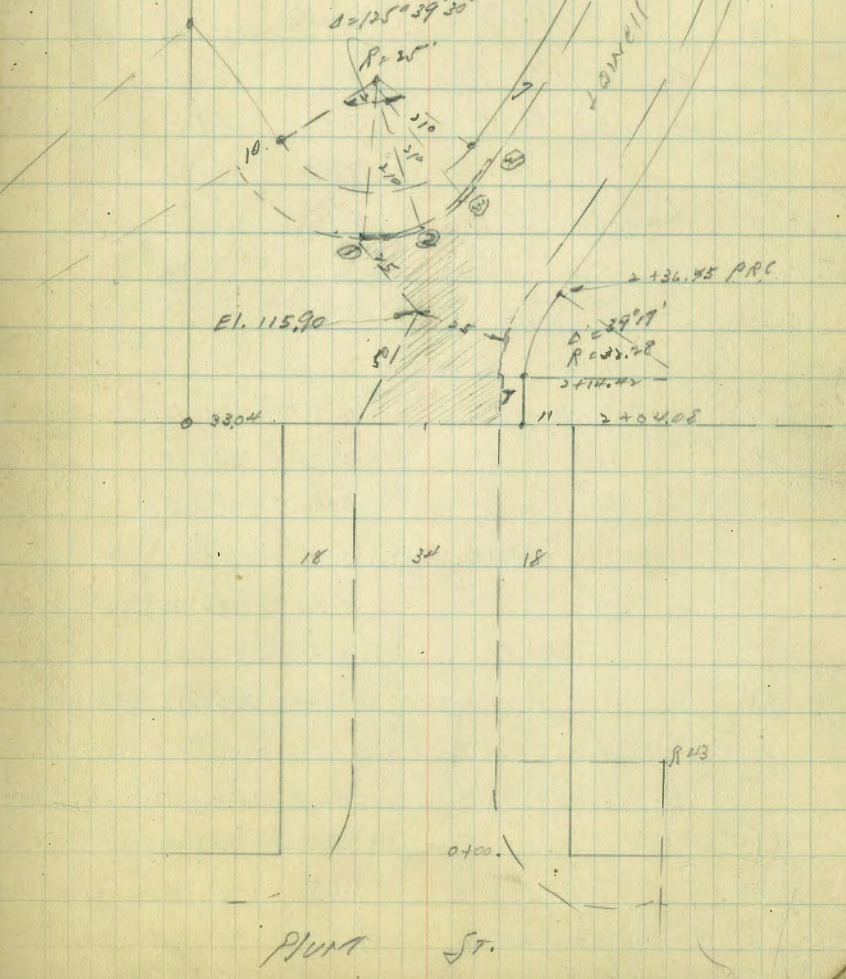 Δ=125°39'30"
R=25'
10
210
210
210
①
②
25
2+36.95 PRC
El. 115.90
25
Δ=39°19'
R=32.28
2+14.42
7
33.04
11
2+04.08
18
34
18
R43
0+00.
Plum St.